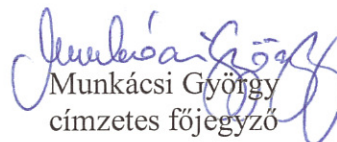 Munkácsi György
Munkácsi György
címzetes főjegyző